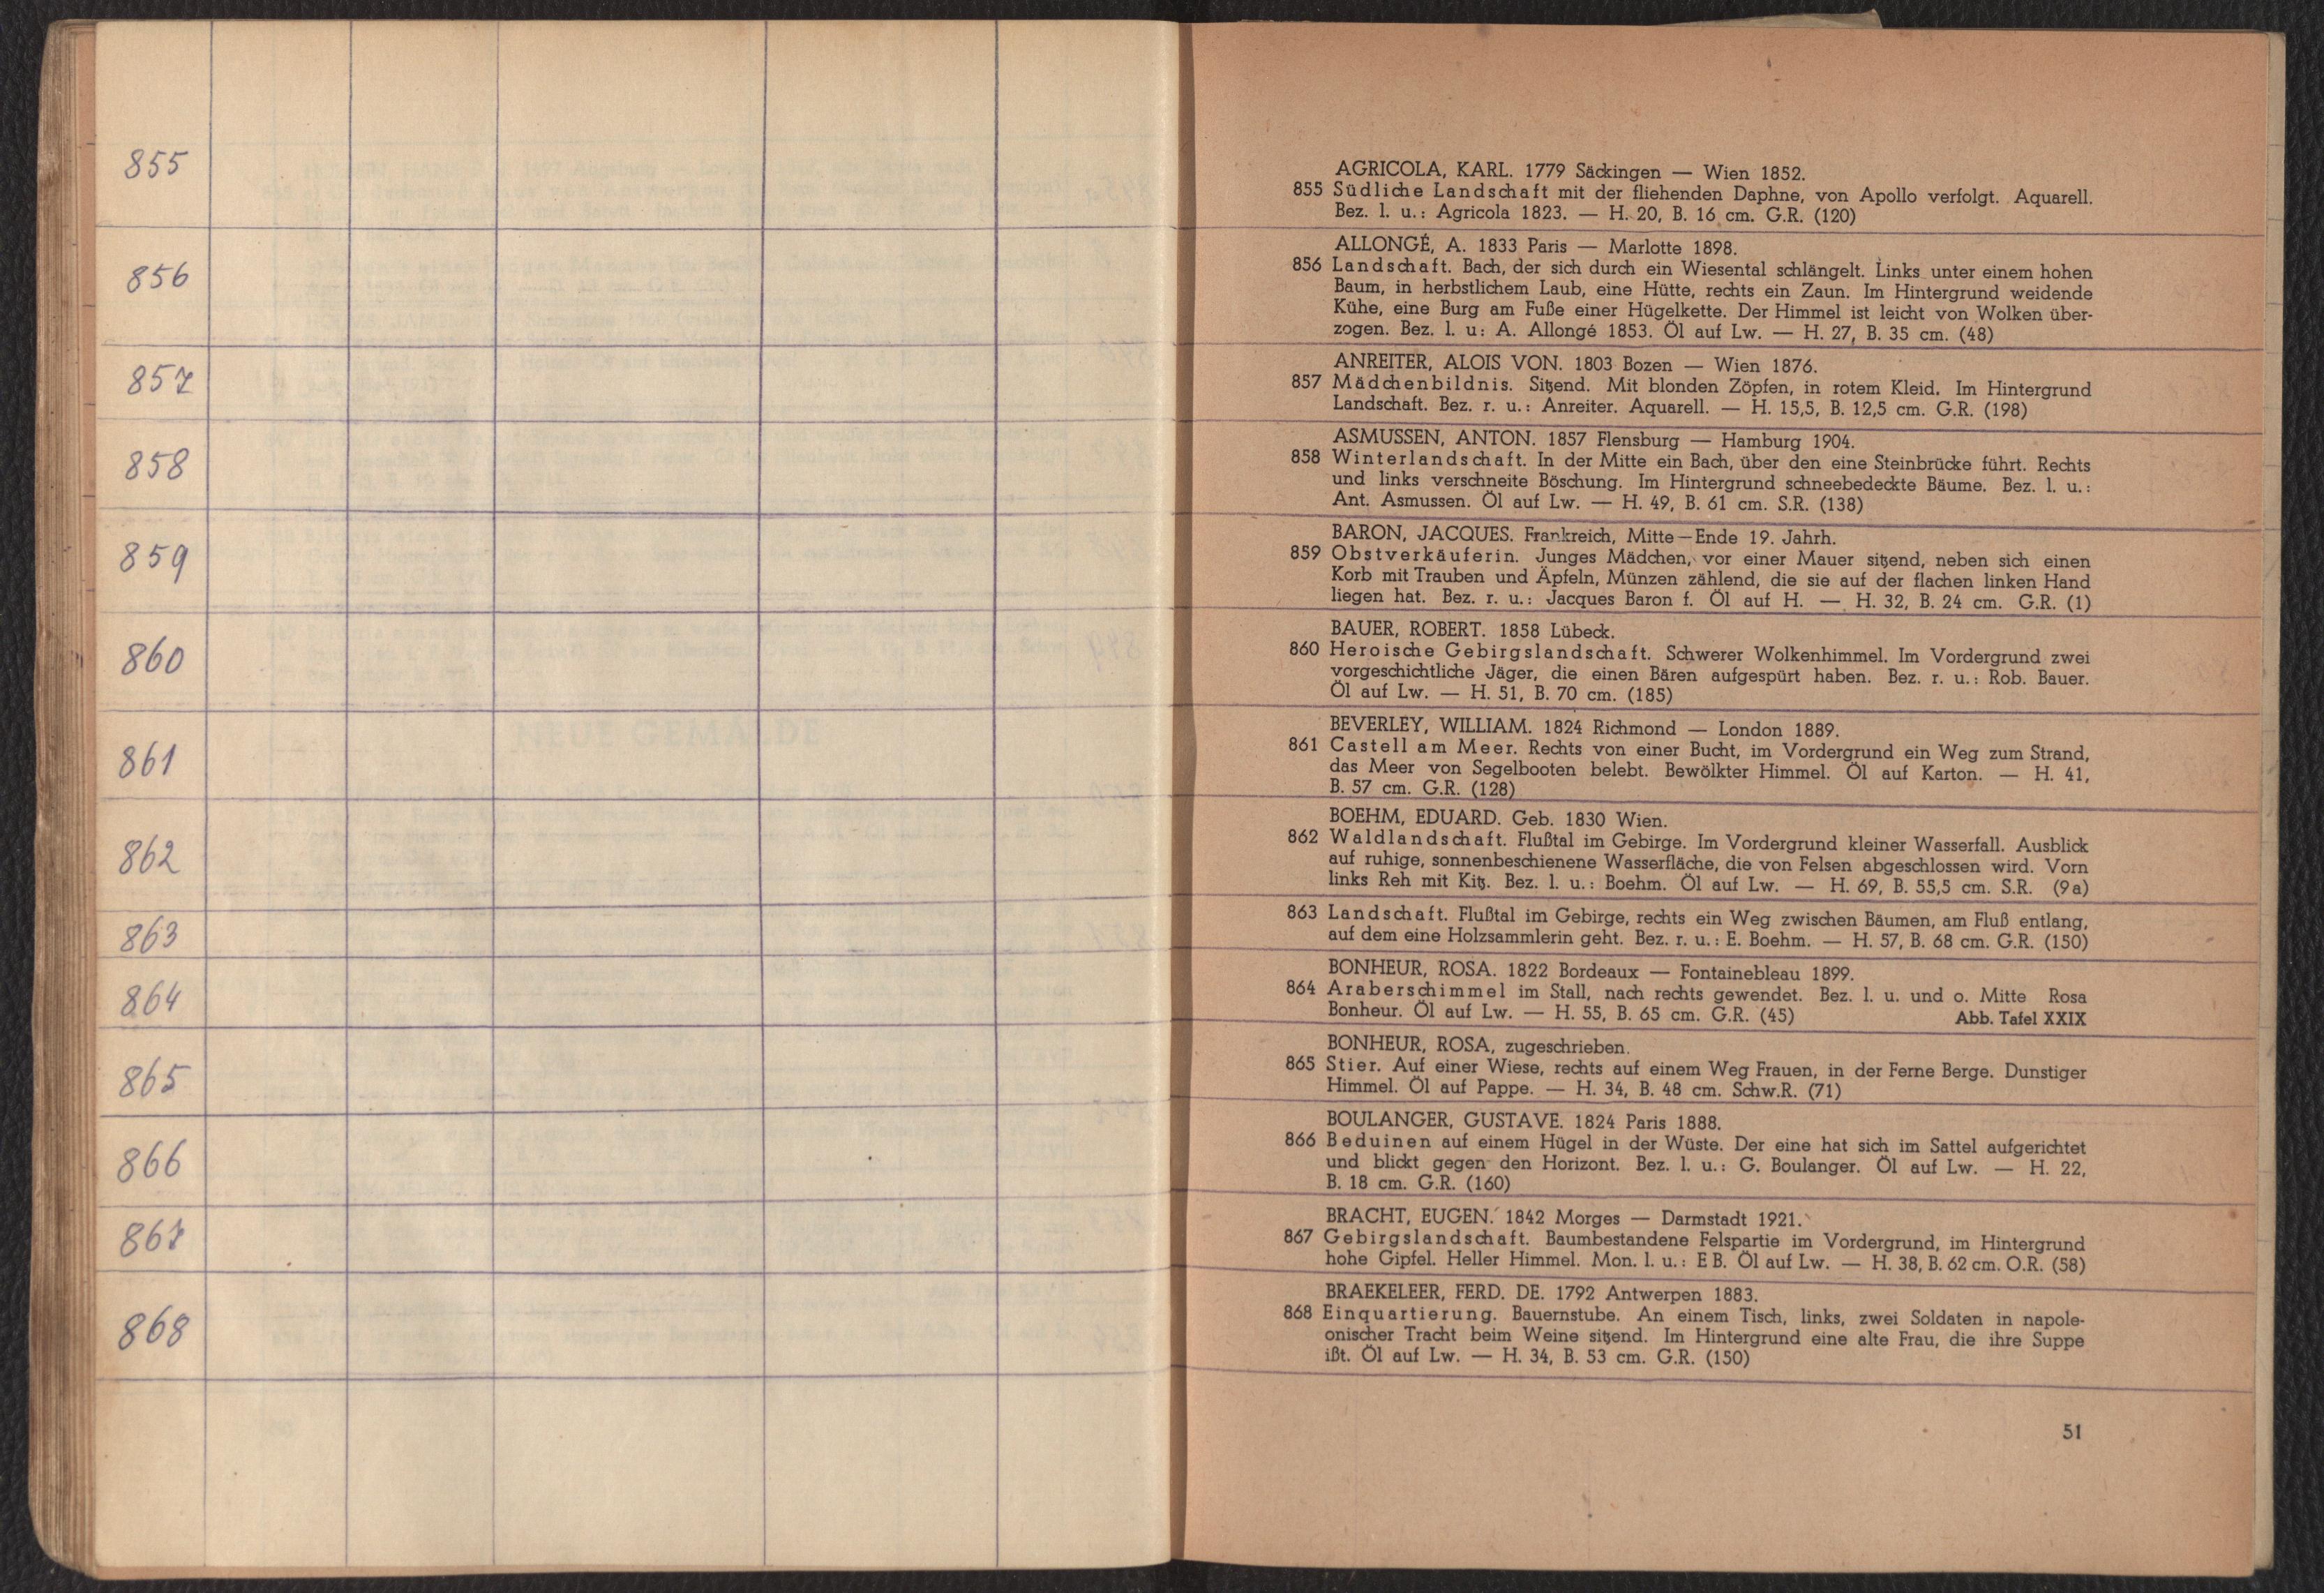 855
856
857
858
859
860
861
862
863
864
865
866
867
868
NEUE GEMÄLDE
AGRICOLA, KARL. 1779 Säckingen — Wien 1852.
855 Südliche Landschaft mit der fliehenden Daphne, von Apollo verfolgt. Aquarell.
Bez. l. u.: Agricola 1823. — H. 20, B. 16 cm. G.R. (120)
ALLONGÉ, A. 1833 Paris — Marlotte 1898.
856 Landschaft. Bach, der sich durch ein Wiesental schlängelt. Links unter einem hohen
Baum, in herbstlichem Laub, eine Hütte, rechts ein Zaun. Im Hintergrund weidende
Kühe, eine Burg am Fuße einer Hügelkette. Der Himmel ist leicht von Wolken über-
zogen. Bez. l. u: A. Allongé 1853. Öl auf Lw. — H. 27, B. 35 cm. (48)
ANREITER, ALOIS VON. 1803 Bozen — Wien 1876.
857 Mädchenbildnis. Sitzend. Mit blonden Zöpfen, in rotem Kleid. Im Hintergrund
Landschaft. Bez. r. u.: Anreiter. Aquarell. — H. 15,5, B. 12,5 cm. G.R. (198)
ASMUSSEN, ANTON. 1857 Flensburg — Hamburg 1904.
858 Winterlandschaft. In der Mitte ein Bach, über den eine Steinbrücke führt. Rechts
und links verschneite Böschung. Im Hintergrund schneebedeckte Bäume. Bez. l. u.:
Ant. Asmussen. Öl auf Lw. — H. 49, B. 61 cm. S.R. (138)
BARON, JACQUES. Frankreich, Mitte—Ende 19. Jahrh.
859 Obstverkäuferin. Junges Mädchen, vor einer Mauer sitzend, neben sich einen
Korb mit Trauben und Äpfeln, Münzen zählend, die sie auf der flachen linken Hand
liegen hat. Bez. r. u.: Jacques Baron f. Öl auf H. — H. 32, B. 24 cm. G.R. (1)
BAUER, ROBERT. 1858 Lübeck.
860 Heroische Gebirgslandschaft. Schwerer Wolkenhimmel. Im Vordergrund zwei
vorgeschichtliche Jäger, die einen Bären aufgespürt haben. Bez. r. u.: Rob. Bauer.
Öl auf Lw. — H. 51, B. 70 cm. (185)
BEVERLEY, WILLIAM. 1824 Richmond — London 1889.
861 Castell am Meer. Rechts von einer Bucht, im Vordergrund ein Weg zum Strand,
das Meer von Segelbooten belebt. Bewölkter Himmel. Öl auf Karton. — H. 41,
B. 57 cm. G.R. (128)
BOEHM, EDUARD. Geb. 1830 Wien.
862 Waldlandschaft. Flußtal im Gebirge. Im Vordergrund kleiner Wasserfall. Ausblick
auf ruhige, sonnenbeschienene Wasserfläche, die von Felsen abgeschlossen wird. Vorn
links Reh mit Kitz. Bez. l. u.: Boehm. Öl auf Lw. — H. 69, B. 55,5 cm. S.R. (9a)
863 Landschaft. Flußtal im Gebirge, rechts ein Weg zwischen Bäumen, am Fluß entlang,
auf dem eine Holzsammlerin geht. Bez. r. u.: E. Boehm. — H. 57, B. 68 cm. G.R. (150)
BONHEUR, ROSA. 1822 Bordeaux — Fontainebleau 1899.
864 Araberschimmel im Stall, nach rechts gewendet. Bez. l. u. und o. Mitte Rosa
Bonheur. Öl auf Lw. — H. 55, B. 65 cm. G.R. (45) Abb. Tafel XXIX
BONHEUR, ROSA, zugeschrieben.
865 Stier. Auf einer Wiese, rechts auf einem Weg Frauen, in der Ferne Berge. Dunstiger
Himmel. Öl auf Pappe. — H. 34, B. 48 cm. Schw.R. (71)
BOULANGER, GUSTAVE. 1824 Paris 1888.
866 Beduinen auf einem Hügel in der Wüste. Der eine hat sich im Sattel aufgerichtet
und blickt gegen den Horizont. Bez. l. u.: G. Boulanger. Öl auf Lw. — H. 22,
B. 18 cm. G.R. (160)
BRACHT, EUGEN. 1842 Morges — Darmstadt 1921.
867 Gebirgslandschaft. Baumbestandene Felspartie im Vordergrund, im Hintergrund
hohe Gipfel. Heller Himmel. Mon. l. u.: E B. Öl auf Lw. — H. 38, B. 62 cm. O.R. (58)
BRAEKELEER, FERD. DE. 1792 Antwerpen 1883.
868 Einquartierung. Bauernstube. An einem Tisch, links, zwei Soldaten in napole-
onischer Tracht beim Weine sitzend. Im Hintergrund eine alte Frau, die ihre Suppe
ißt. Öl auf Lw. — H. 34, B. 53 cm. G.R. (150)
51